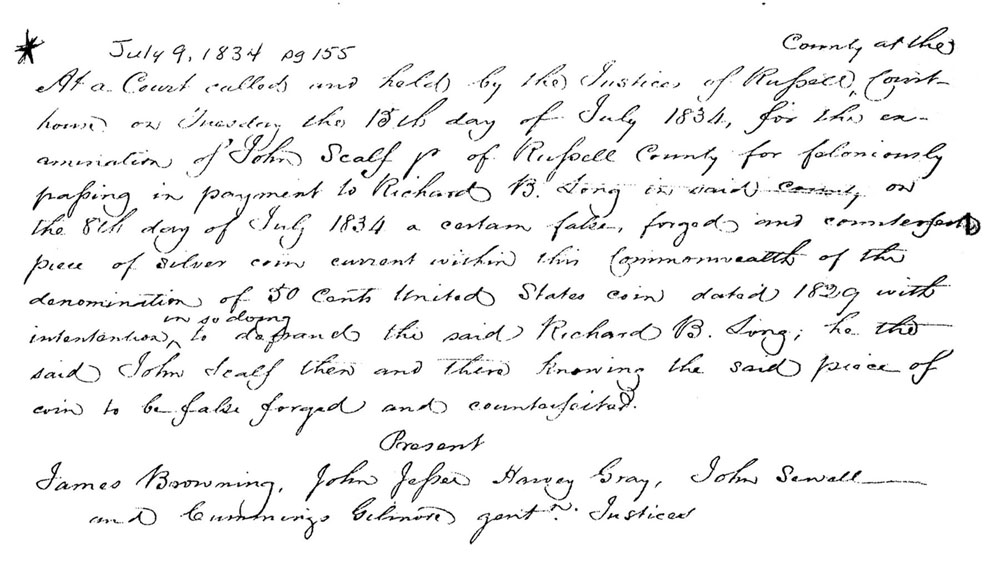 * July 9, 1834 pg 155 County at the
At a Court called and held by the Justices of Russell, Court-
house on Tuesday the 15th day of July 1834, for the ex-
amination of John Scalf jr of Russell County for feloniously
passing in payment to Richard B. Long in said county on
the 8th day of July 1834 a certain false, forged and counterfeited
piece of silver coin current within this Commonwealth of the
denomination of 50 Cents United States coin dated 1829 with
in so doing
intentention ^ to defraud the said Richard B. Long; he the
said John Scalf then and there knowing the said piece of
coin to be false forged and counterfeited.
Present
James Browning, John Jessee Harvey Gray, John Sewell
and Cummings Gilmore gentn. Justices